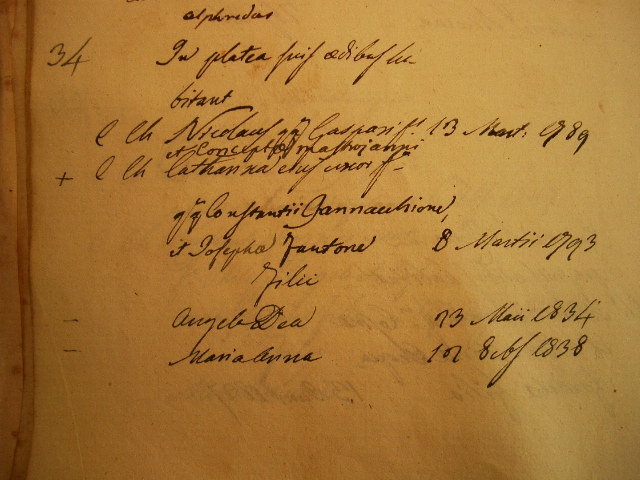 alphredas
34 In platea suis ædibus ha-
bitant
C Ch Nicolaus qm Gasparis f. 13 Mart: 1789
et Conceptæ Mastrojanni
+ C Ch Catharina ejus uxor f.
qm Constantii Jannacchione,
et Josephæ Fantone 8 Martii 1793
Filii
— Angela Dea 23 Maii 1834
— Maria Anna 8bs 1838